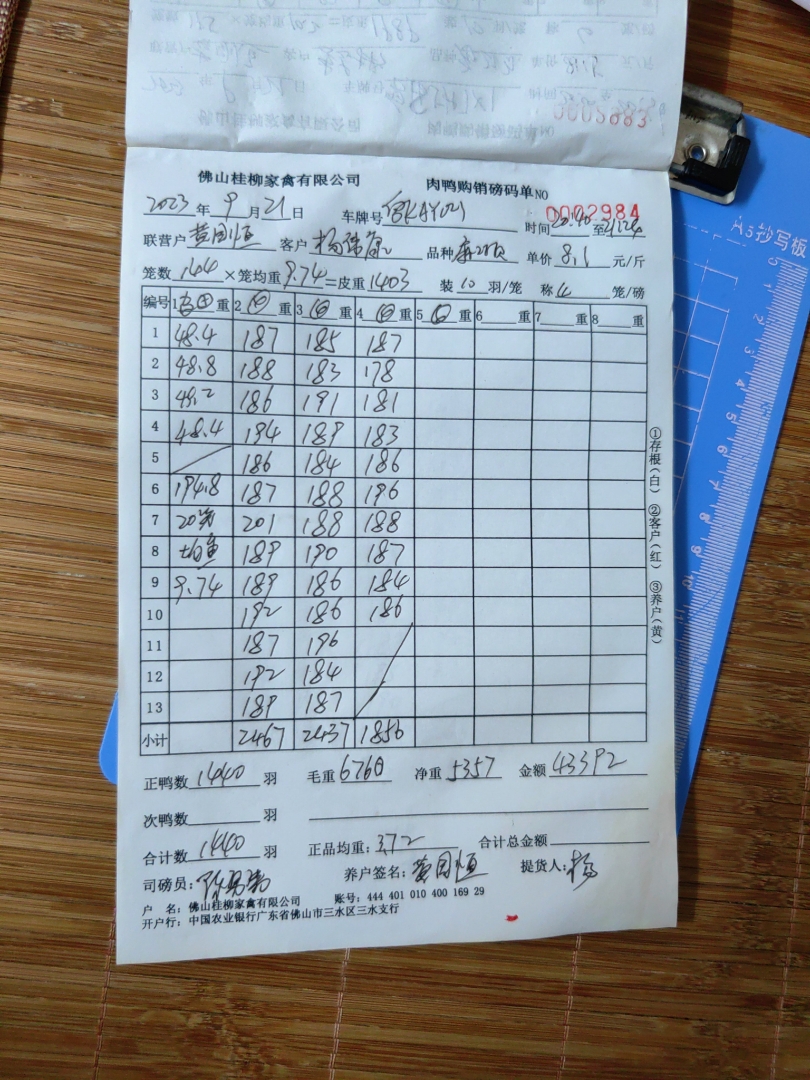 0002983
佛山桂柳家禽有限公司 肉鸭购销磅码单 NO 0002984
2023年9月21日 车牌号 KAY021 时间 至
联营户 黄国恒 客户 杨 品种 单价 8.1 元/斤
笼数 144 ×笼均重 9.74 =皮重 1403 装 10 羽/笼 称 4 笼/磅
编号 1 重 2 重 3 重 4 重 5 重 6 重 7 重 8 重
1 48.4 187 185 187
2 48.8 188 183 178
3 49.2 186 191 181
4 48.4 194 189 183
5 186 184 186
6 194.8 187 188 196
7 20 201 188 188
8 均重 189 190 187
9 9.74 189 186 184
10 192 186 186
11 187 196
12 192 184
13 189 187
小计 2467 2437 1856
正鸭数 1440 羽 毛重 6760 净重 5357 金额 43392
次鸭数 羽
合计数 1440 羽 正品均重: 3.72 合计总金额
司磅员: 养户签名: 黄国恒 提货人: 杨
户 名: 佛山桂柳家禽有限公司 账号: 444 401 010 400 169 29
开户行: 中国农业银行广东省佛山市三水区三水支行
①存根(白) ②客户(红) ③养户(黄)
A5抄写板